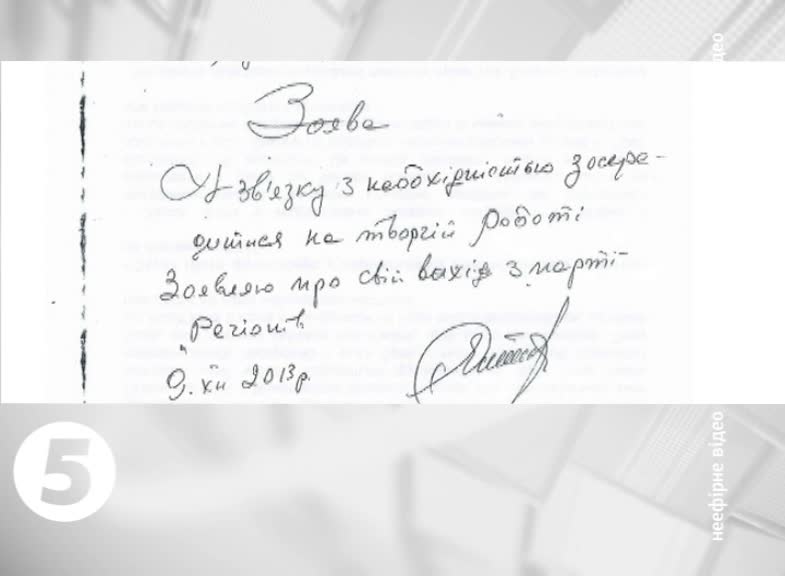 Заява
У зв'язку з необхідністю зосере-
дитися на творчій роботі
Заявляю про свій вихід з партії
Регіонів
9. XII 2013р.
5
неефірне відео
ідео